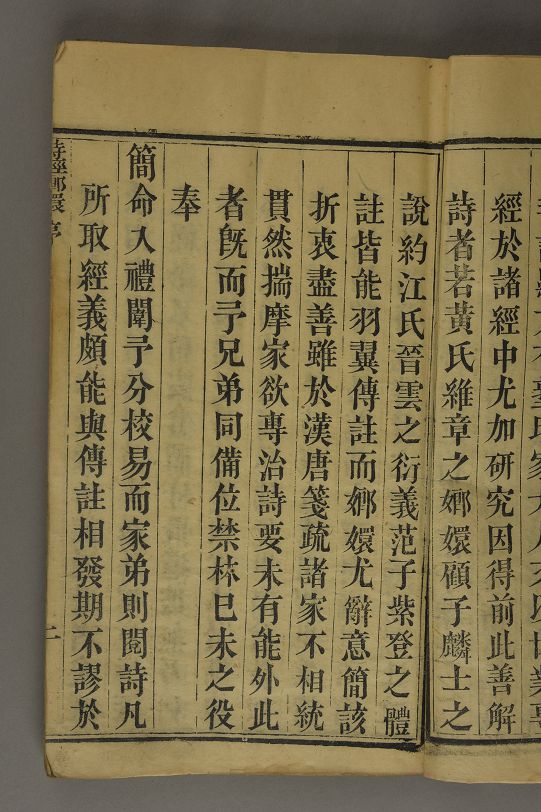 經於諸經中尤加研究因得前此善解
詩者若黃氏維章之嫏嬛顧子麟士之
說約江氏晉雲之衍義范子紫登之體
註皆能羽翼傳註而嫏嬛尤辭意簡該
折衷盡善雖於漢唐箋疏諸家不相統
貫然揣摩家欲專治詩要未有能外此
者旣而予兄弟同備位禁林巳未之役
奉
簡命入禮闈予分校易而家弟則閱詩凡
所取經義頗能與傳註相發期不謬於
詩經嫏嬛 序
二